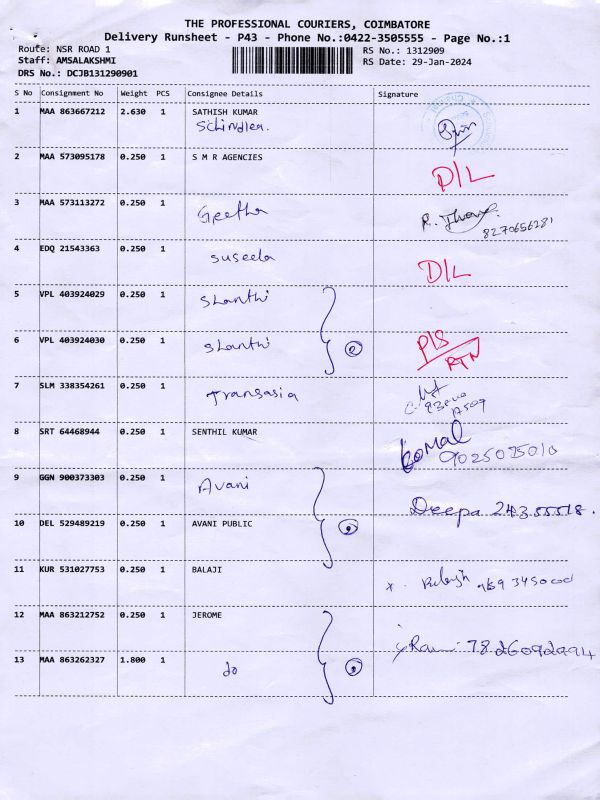 THE PROFESSIONAL COURIERS, COIMBATORE
Delivery Runsheet - P43 - Phone No.:0422-3505555 - Page No.:1
Route: NSR ROAD 1 RS No.: 1312909
Staff: AMSALAKSHMI RS Date: 29-Jan-2024
DRS No.: DCJB131290901
S No Consignment No Weight PCS Consignee Details Signature
1 MAA 863667212 2.630 1 SATHISH KUMAR
Schindler.
2 MAA 573095178 0.250 1 S M R AGENCIES D/L
3 MAA 573113272 0.250 1 Geetha R.
8270656281
4 EDQ 21543363 0.250 1 Suseela D/L
5 VPL 403924029 0.250 1 Shanthi
6 VPL 403924030 0.250 1 Shanthi 2 P/S
RTN
7 SLM 338354261 0.250 1 Transasia
8 SRT 64468944 0.250 1 SENTHIL KUMAR Komal
9025025010
9 GGN 900373303 0.250 1 Avani
Deepa 24355518.
10 DEL 529489219 0.250 1 AVANI PUBLIC
11 KUR 531027753 0.250 1 BALAJI
12 MAA 863212752 0.250 1 JEROME
7826092994
13 MAA 863262327 1.800 1 do